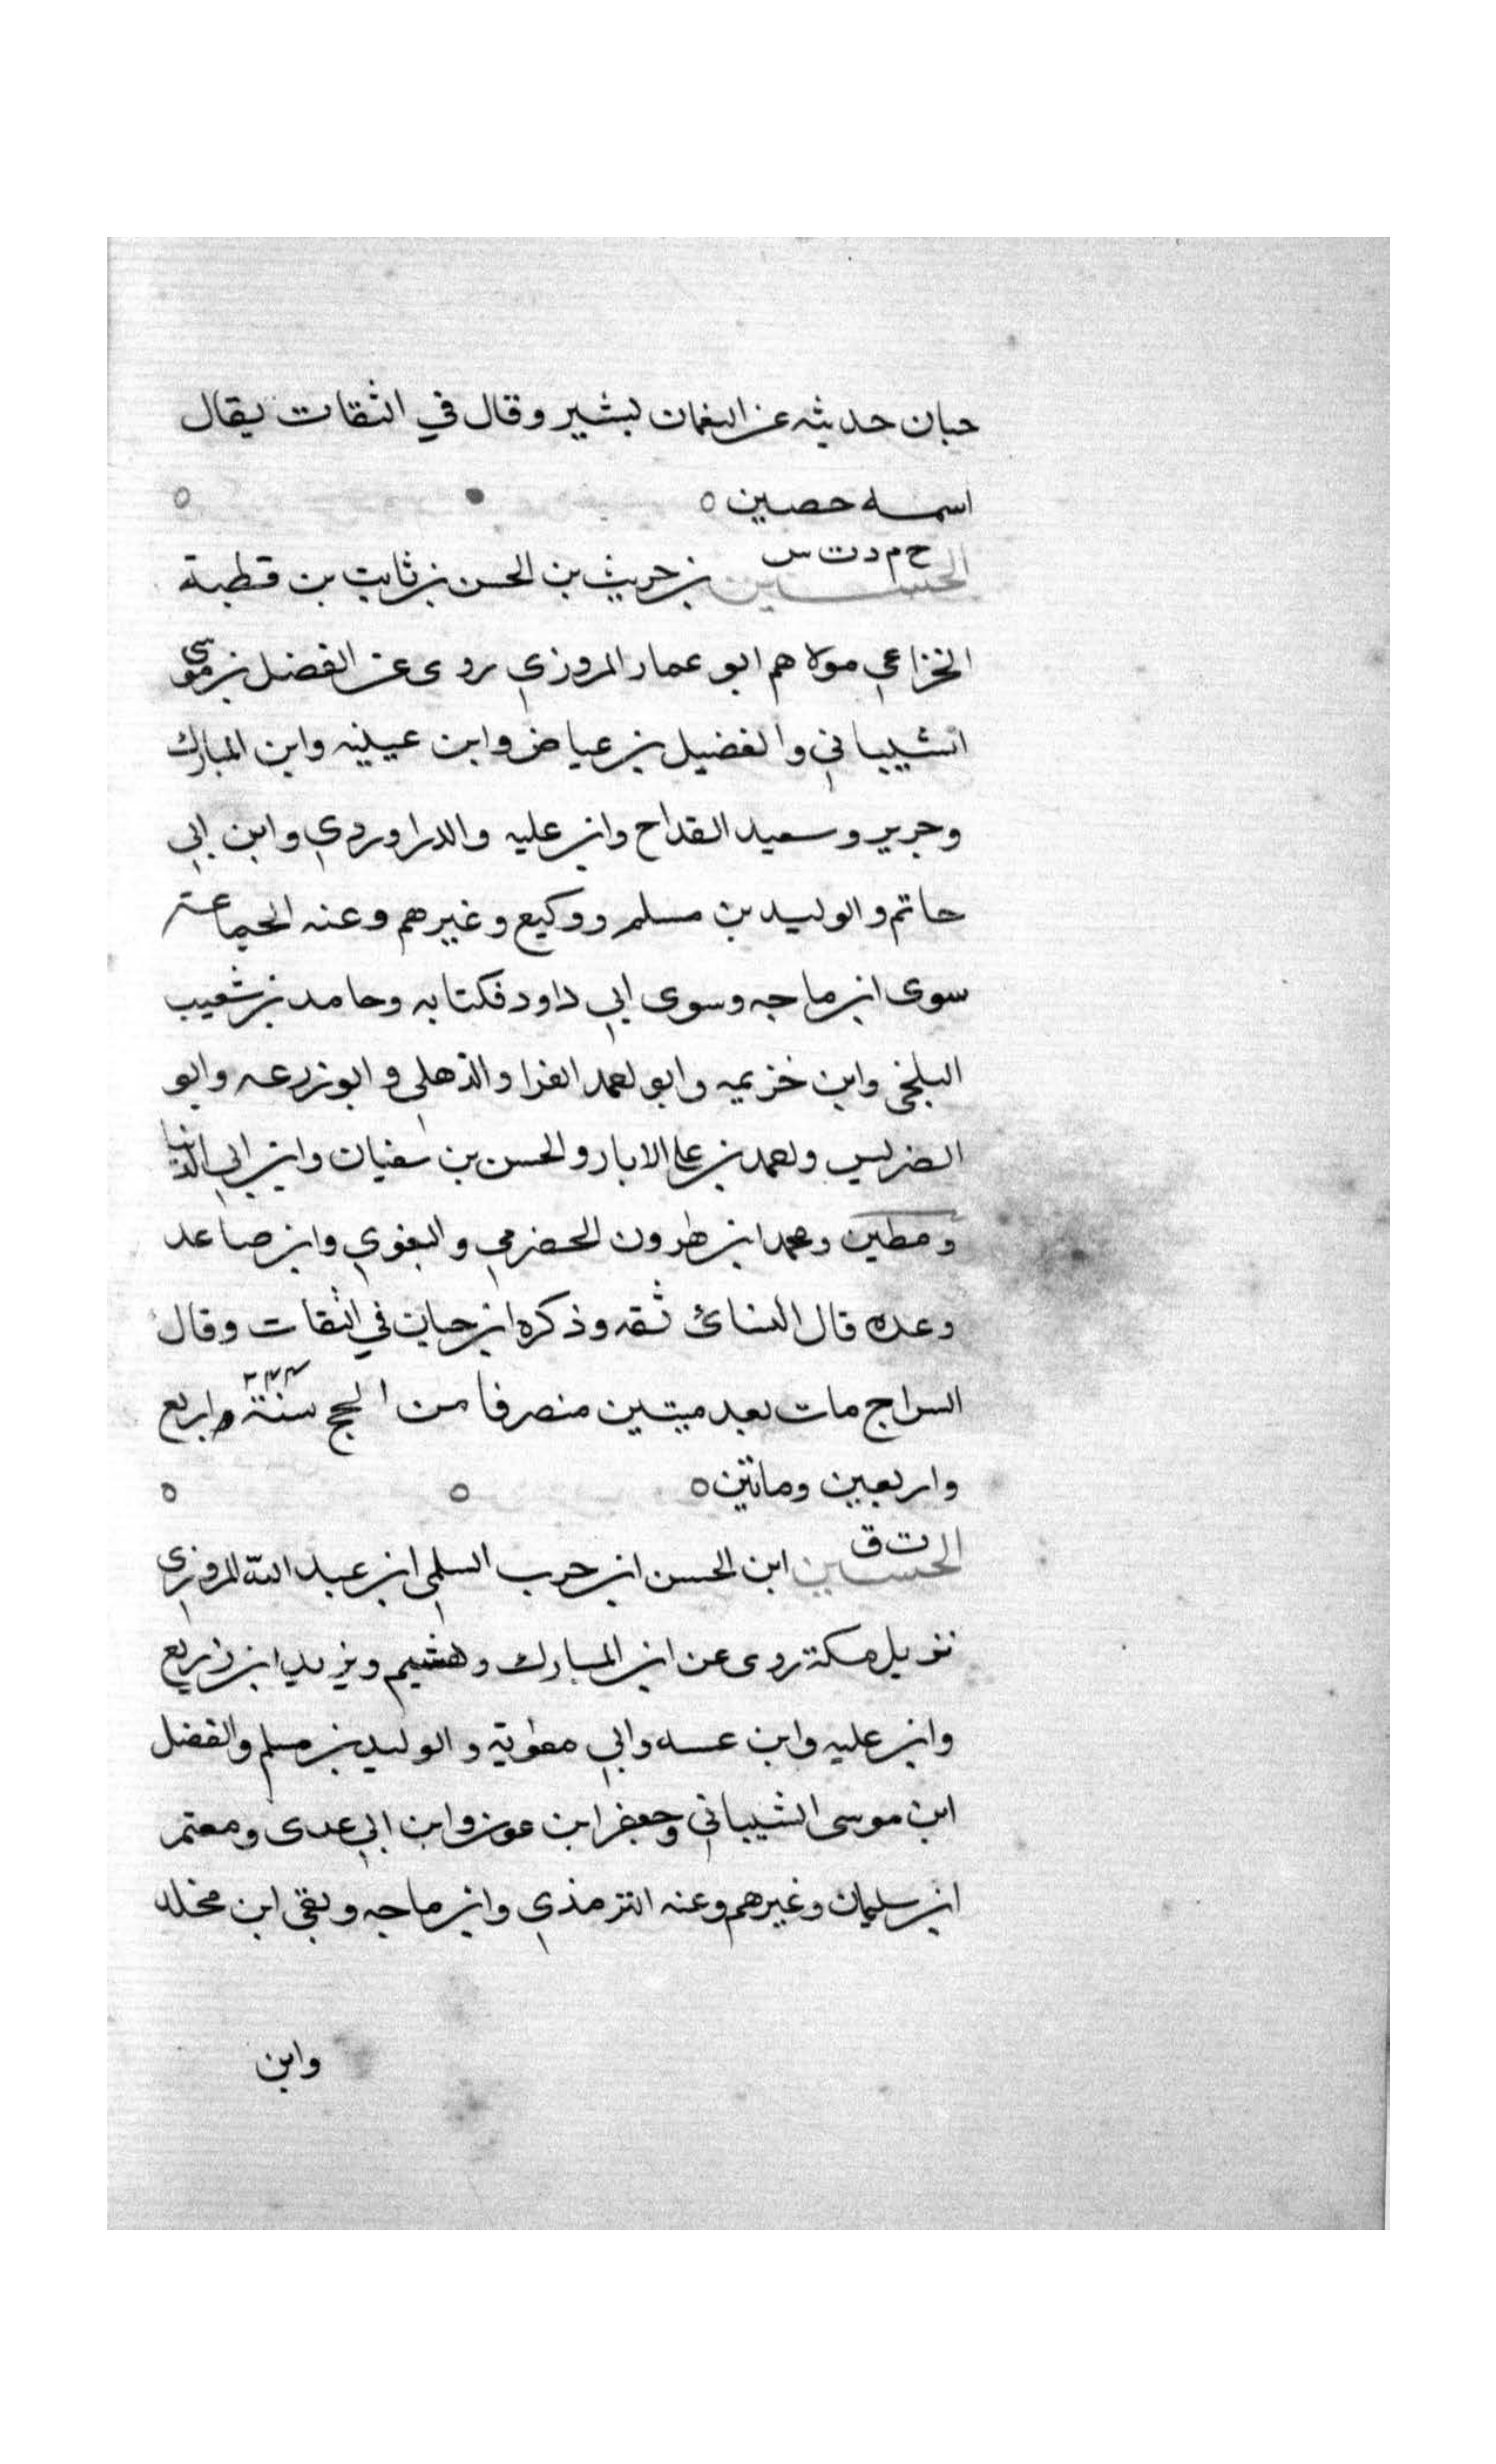 حبان حديثه عن النعمان لبشير وقال في الثقات يقال
اسمه حصين ه ه
خ م د ت س
الحسين بن حريث بن الحسن بن ثابت بن قطبة
الخزاعي مولاهم ابو عمار المروزي روى عن الفضل بن موسى
الشيباني والفضيل بن عياض وابن عيينه وابن المبارك
وجرير وسعيد القداح وابن عليه والدراوردي وابن ابي
حاتم والوليد بن مسلم ووكيع وغيرهم وعنه الجماعة
سوى ابن ماجه وسوى ابي داود فكتابه وحامد بن شعيب
البلخي وابن خزيمه وابو احمد الفرا والذهلي وابو زرعه وابو
الضريس واحمد بن علي الابار والحسن بن سفيان وابن ابي الدنيا
ومطين ومحمد ابن هرون الحضرمي والبغوي وابن صاعد
وعده قال النسائ ثقه وذكره ابن حبان في الثقات وقال
السراج مات بعد ميتين منصرفا من الحج سنة ٢٤٤ واربع
واربعين وماتين ه ه ه
ت ق
الحسين ابن الحسن ابن حرب السلمي ابن عبد الله المروزى
نزيل مكة روى عن ابن المبارك وهشيم ويزيد ابن زريع
وابن عليه وابن وابي معوية والوليد بن مسلم والفضل
ابن موسى الشيباني وجعفر ابن عون وابن ابي عدى ومعتمر
ابن سليمان وغيرهم وعنه الترمذي وابن ماجه وبقي ابن مخلد
وابن